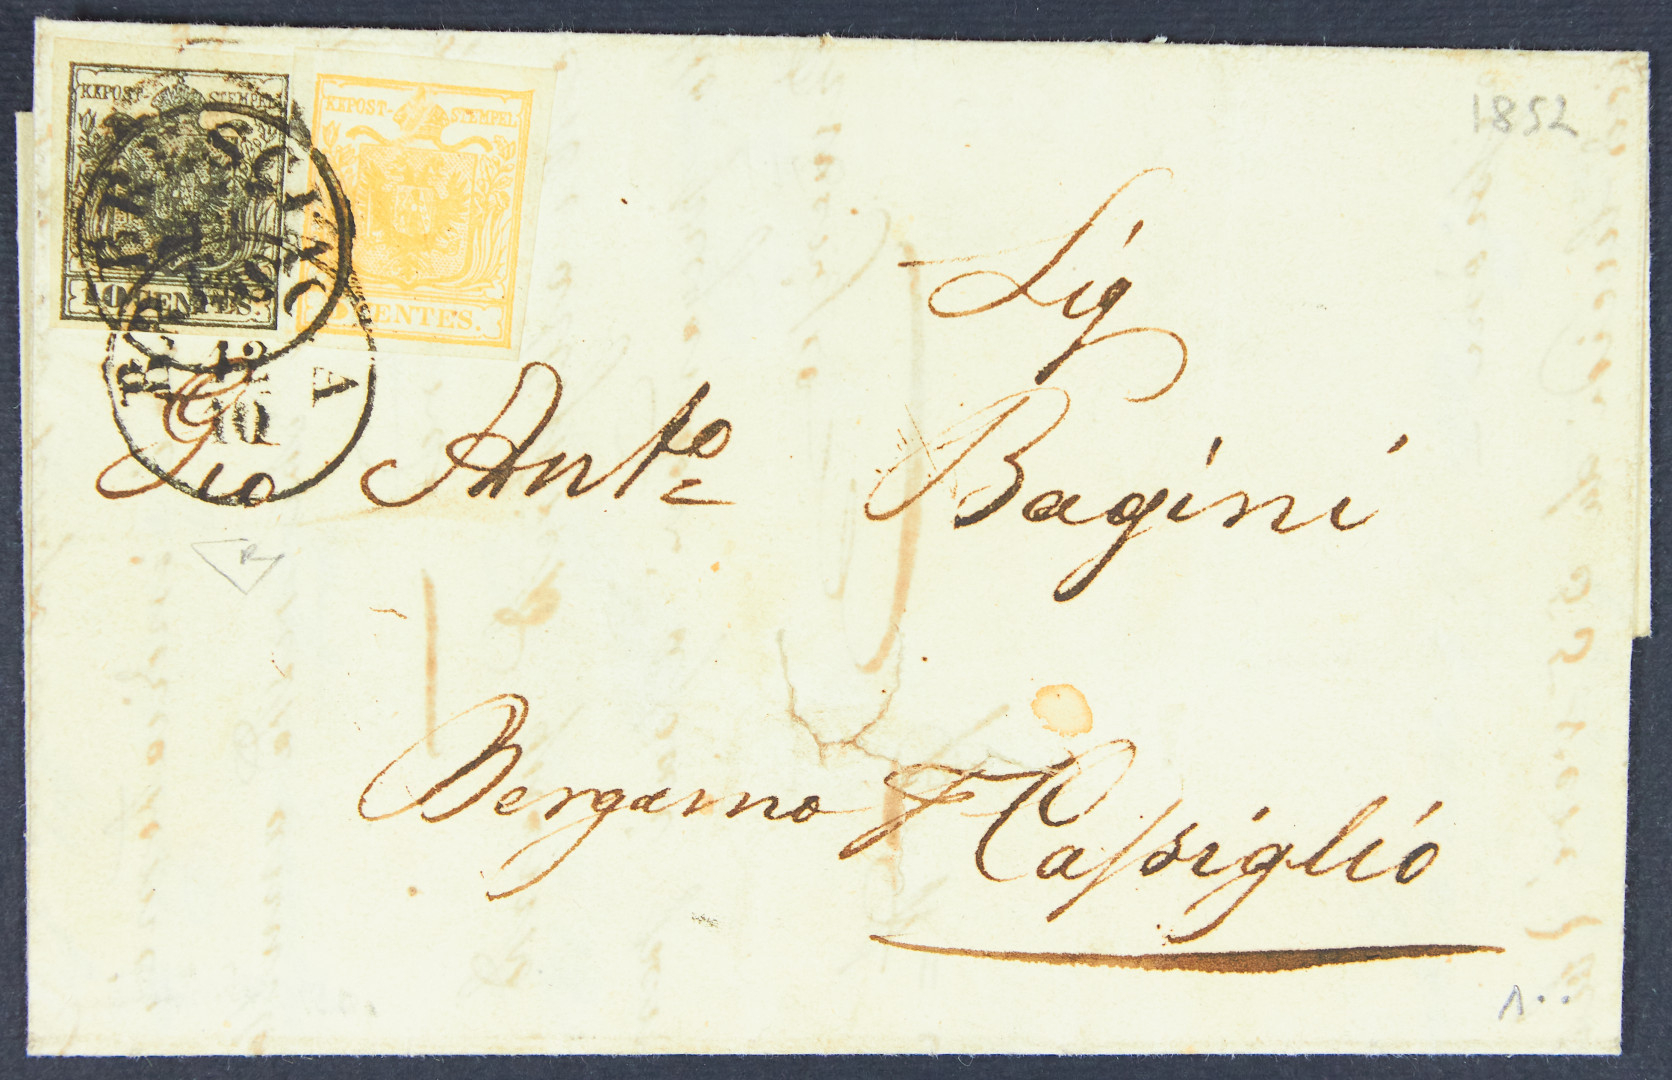 1852
KKPOST-STEMPEL
10 CENTES.
KKPOST-STEMPEL
5 CENTES.
BRESCIA
12
10
Sig
Gio Anto Bagini
Bergamo Cassiglio